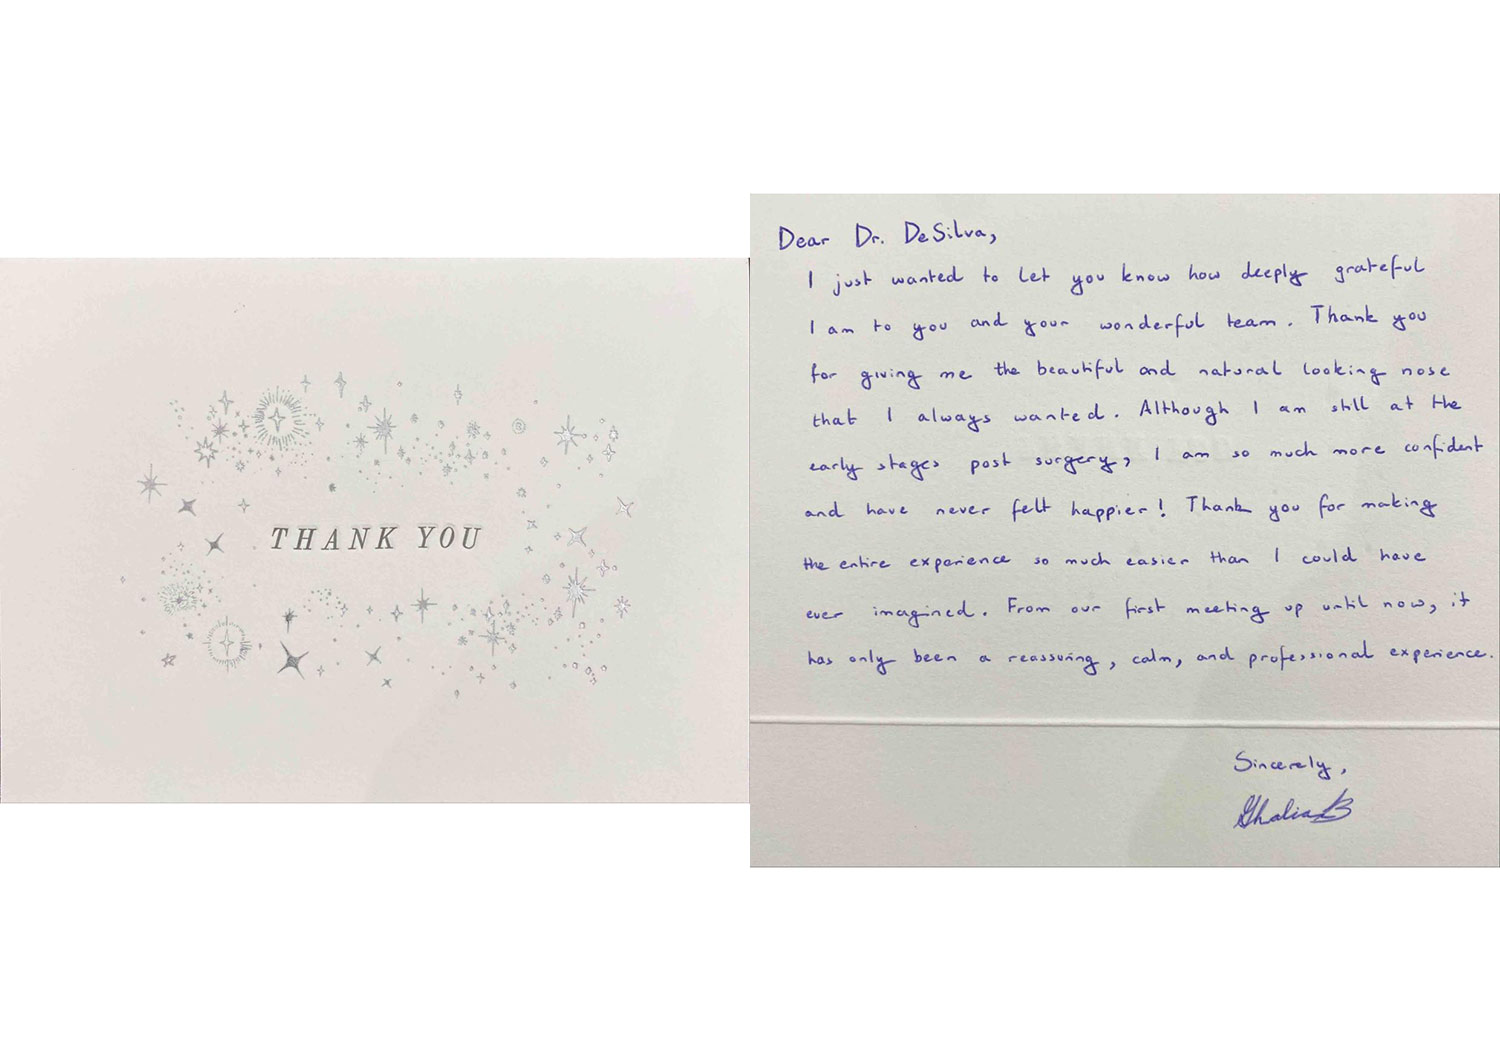 THANK YOU
Dear Dr. DeSilva,
I just wanted to let you know how deeply grateful
I am to you and your wonderful team. Thank you
for giving me the beautiful and natural looking nose
that I always wanted. Although I am still at the
early stages post surgery, I am so much more confident
and have never felt happier! Thank you for making
the entire experience so much easier than I could have
ever imagined. From our first meeting up until now, it
has only been a reassuring, calm, and professional experience.
Sincerely,
Ghalia B